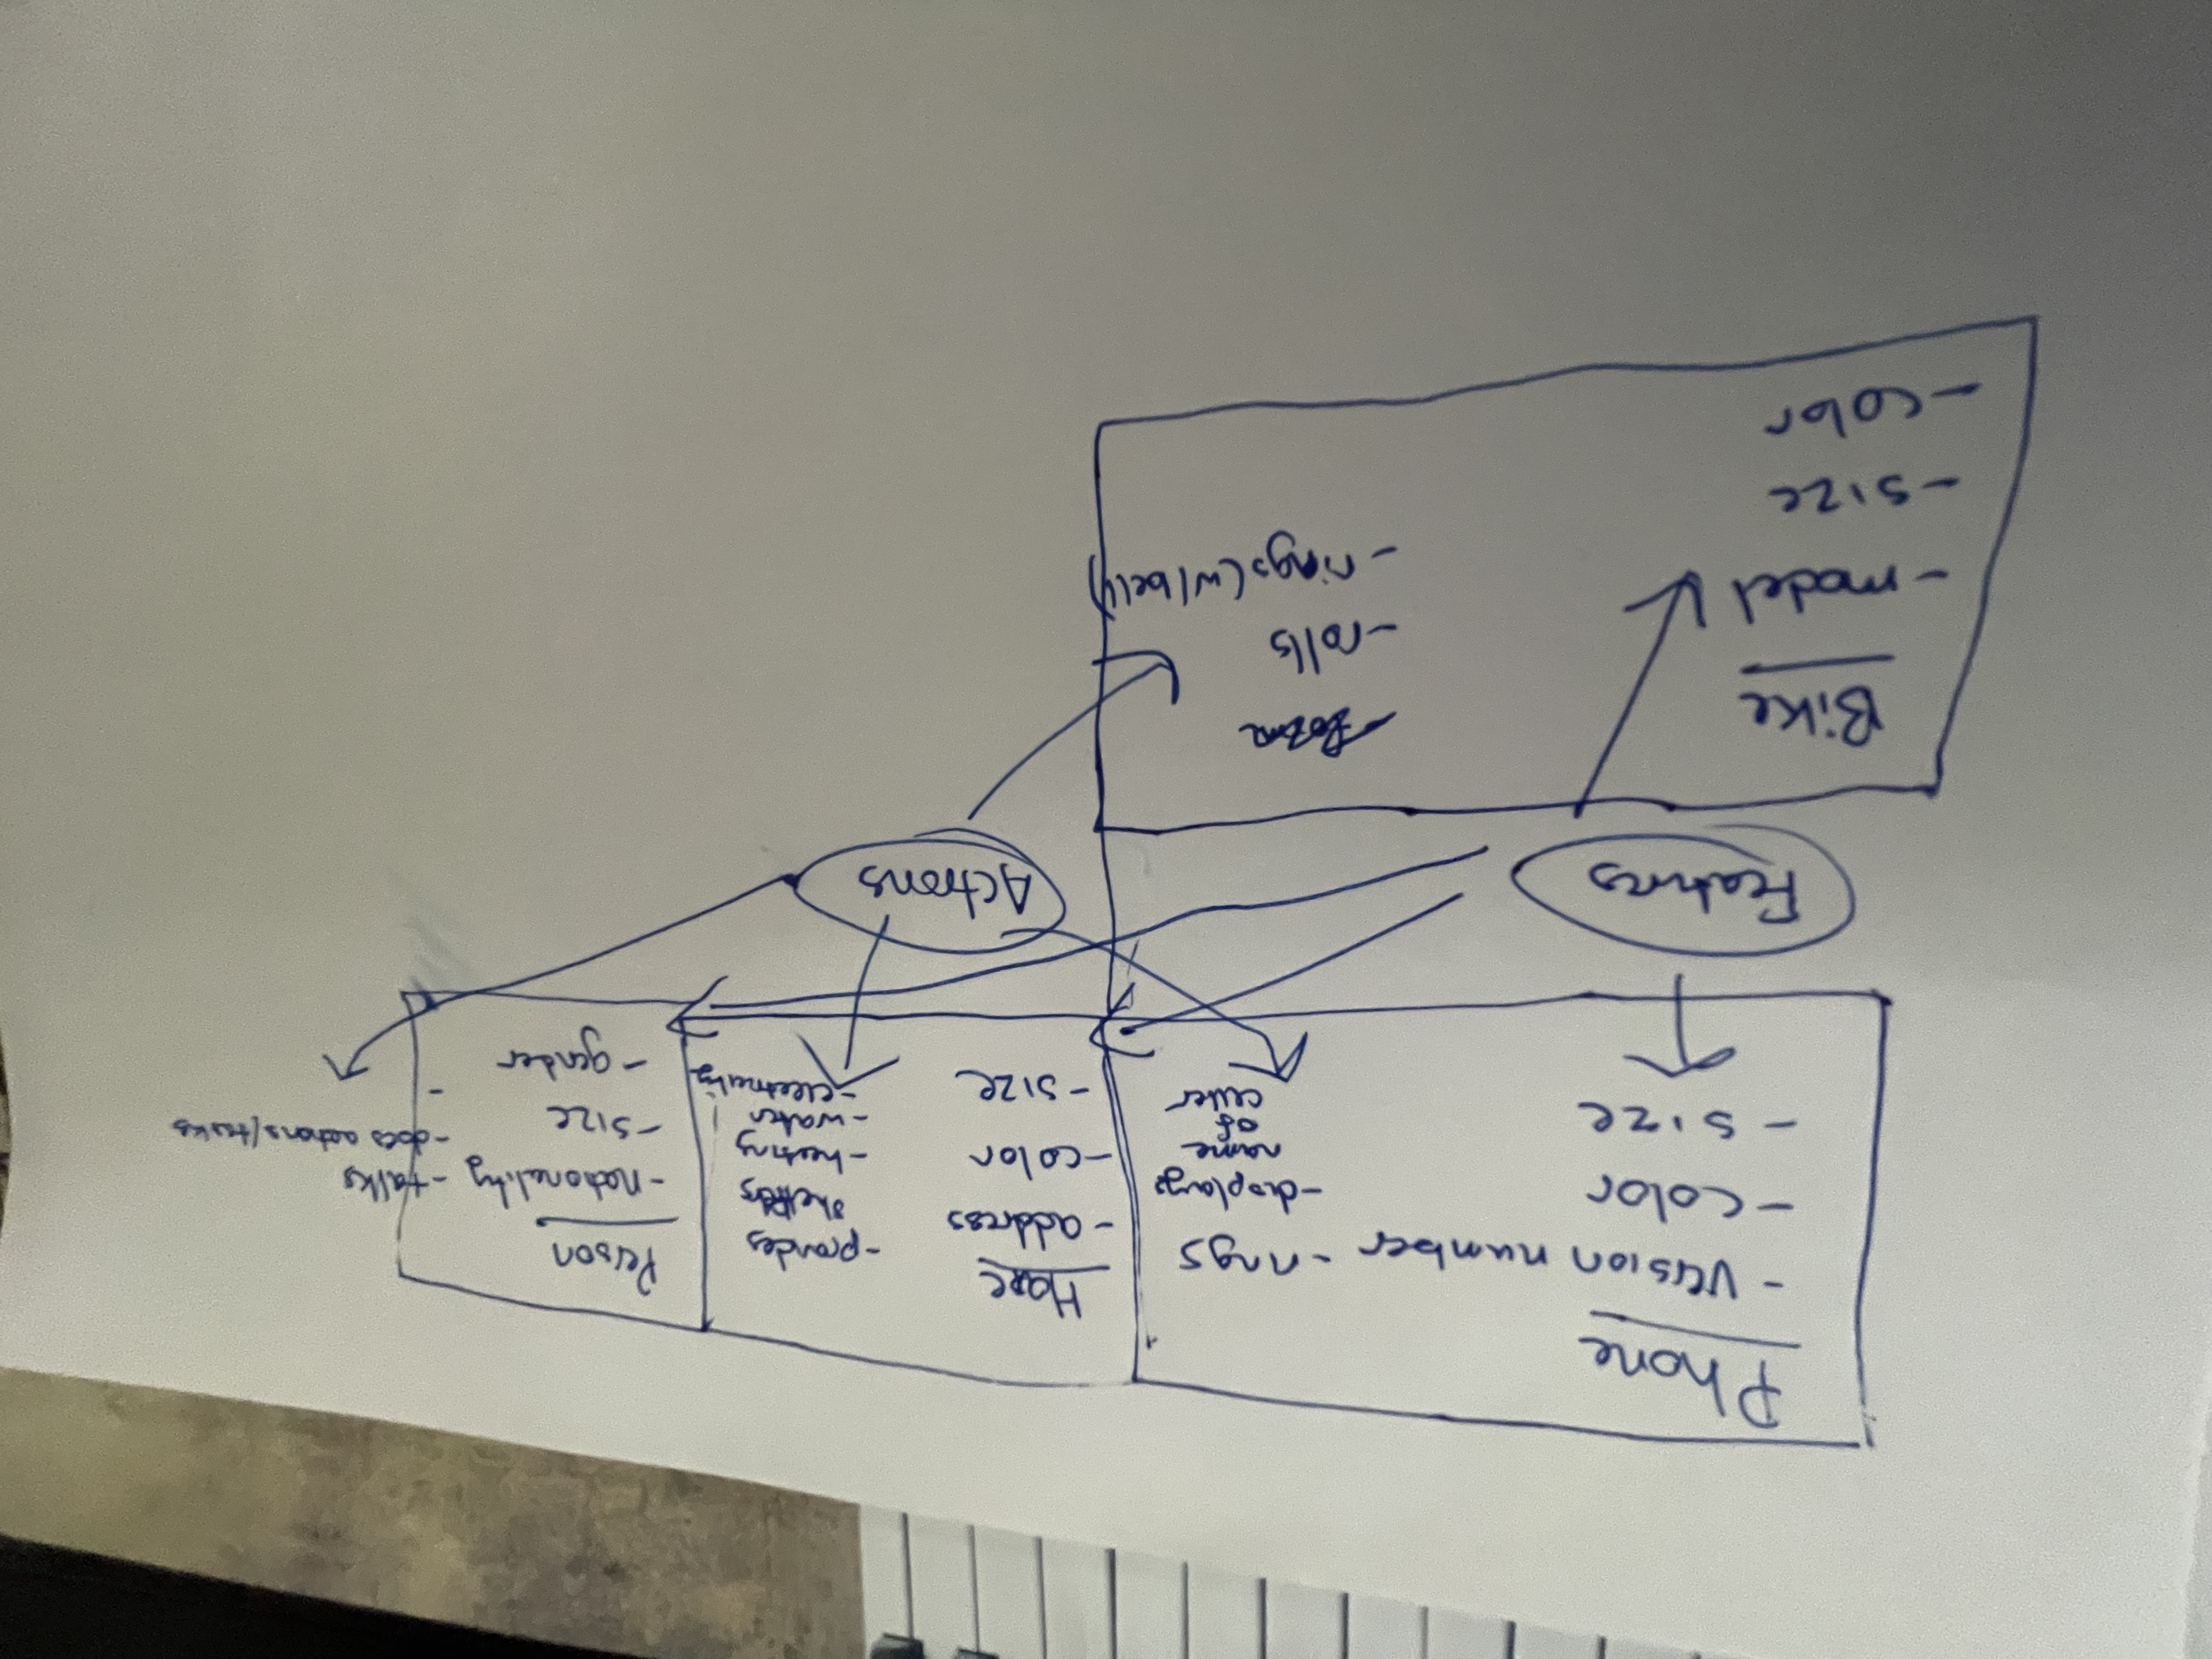 Phone
- version number
- color
- size
- rings
- displays
name
of
caller
House
- address
- color
- size
- provides
- heating
- water
- electricity
Person
- nationality
- size
- gender
- talks
- does actions/tasks
-
Features
Actions
Bike
- model
- size
- color
- rolls
- rings (w/bell)